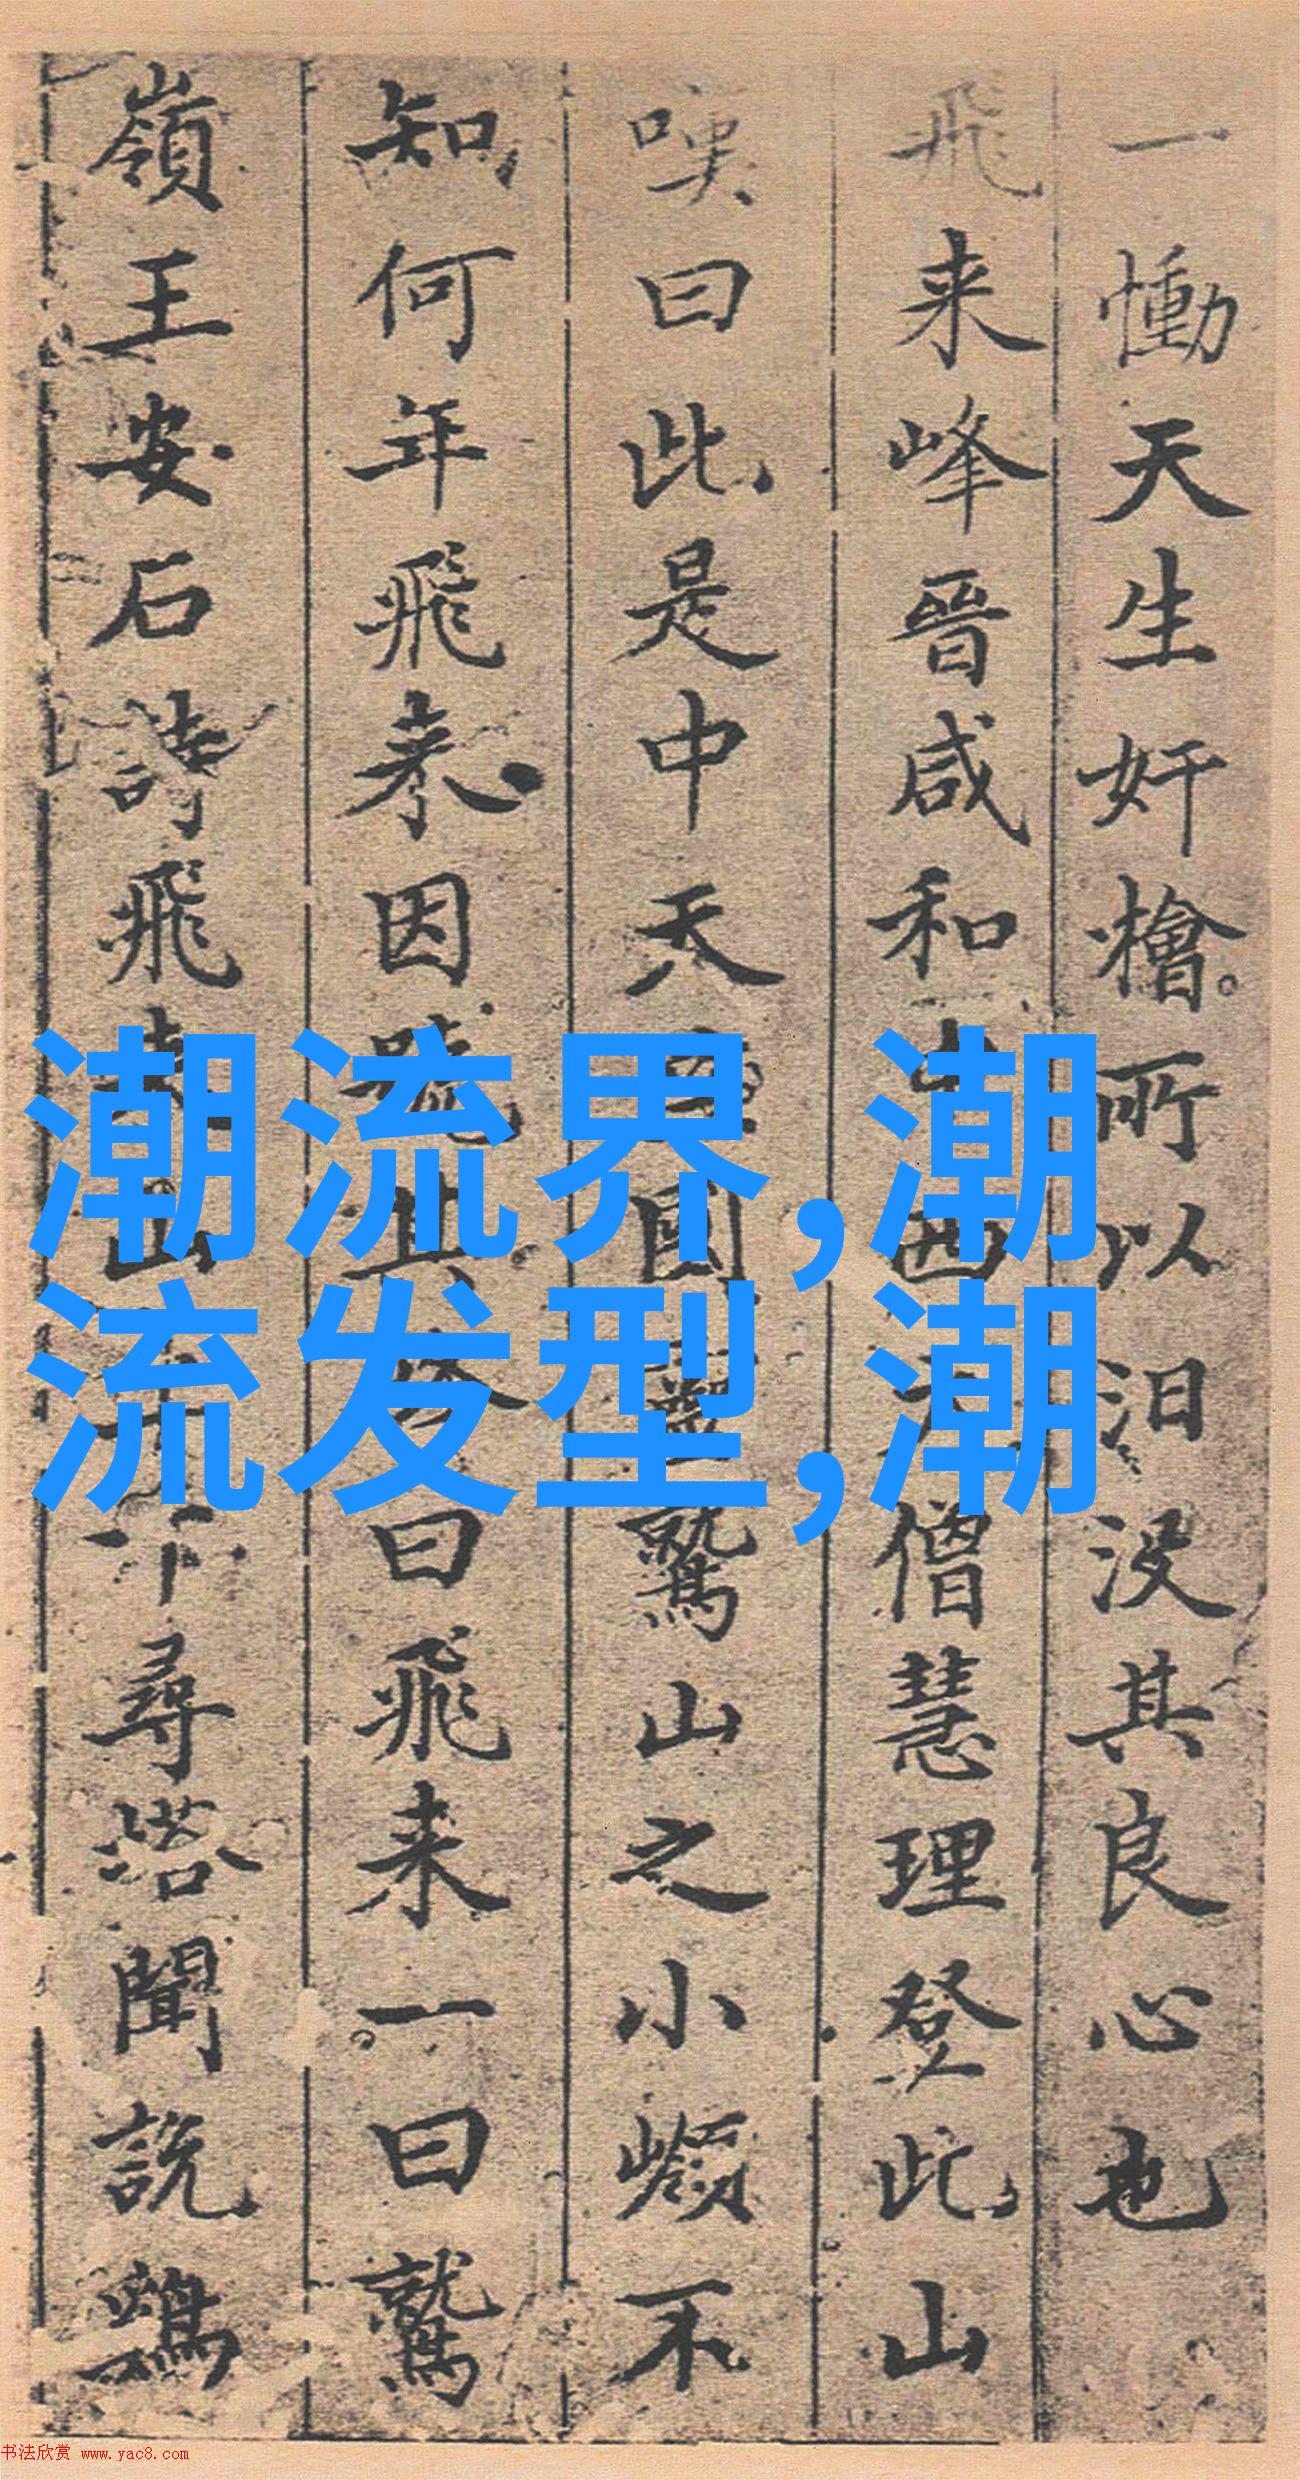 一慟天生奸檜所以汨没其良心也
飛来峰晉咸和中西天僧慧理登此山
嘆曰此是中天竺國靈鷲山之小嶺不
知何年飛来因號其峰曰飛来一曰鷲
嶺王安石詩飛来山上千尋塔聞說鷄
潮流界,潮
流发型,潮
书法欣赏 www.yac8.com